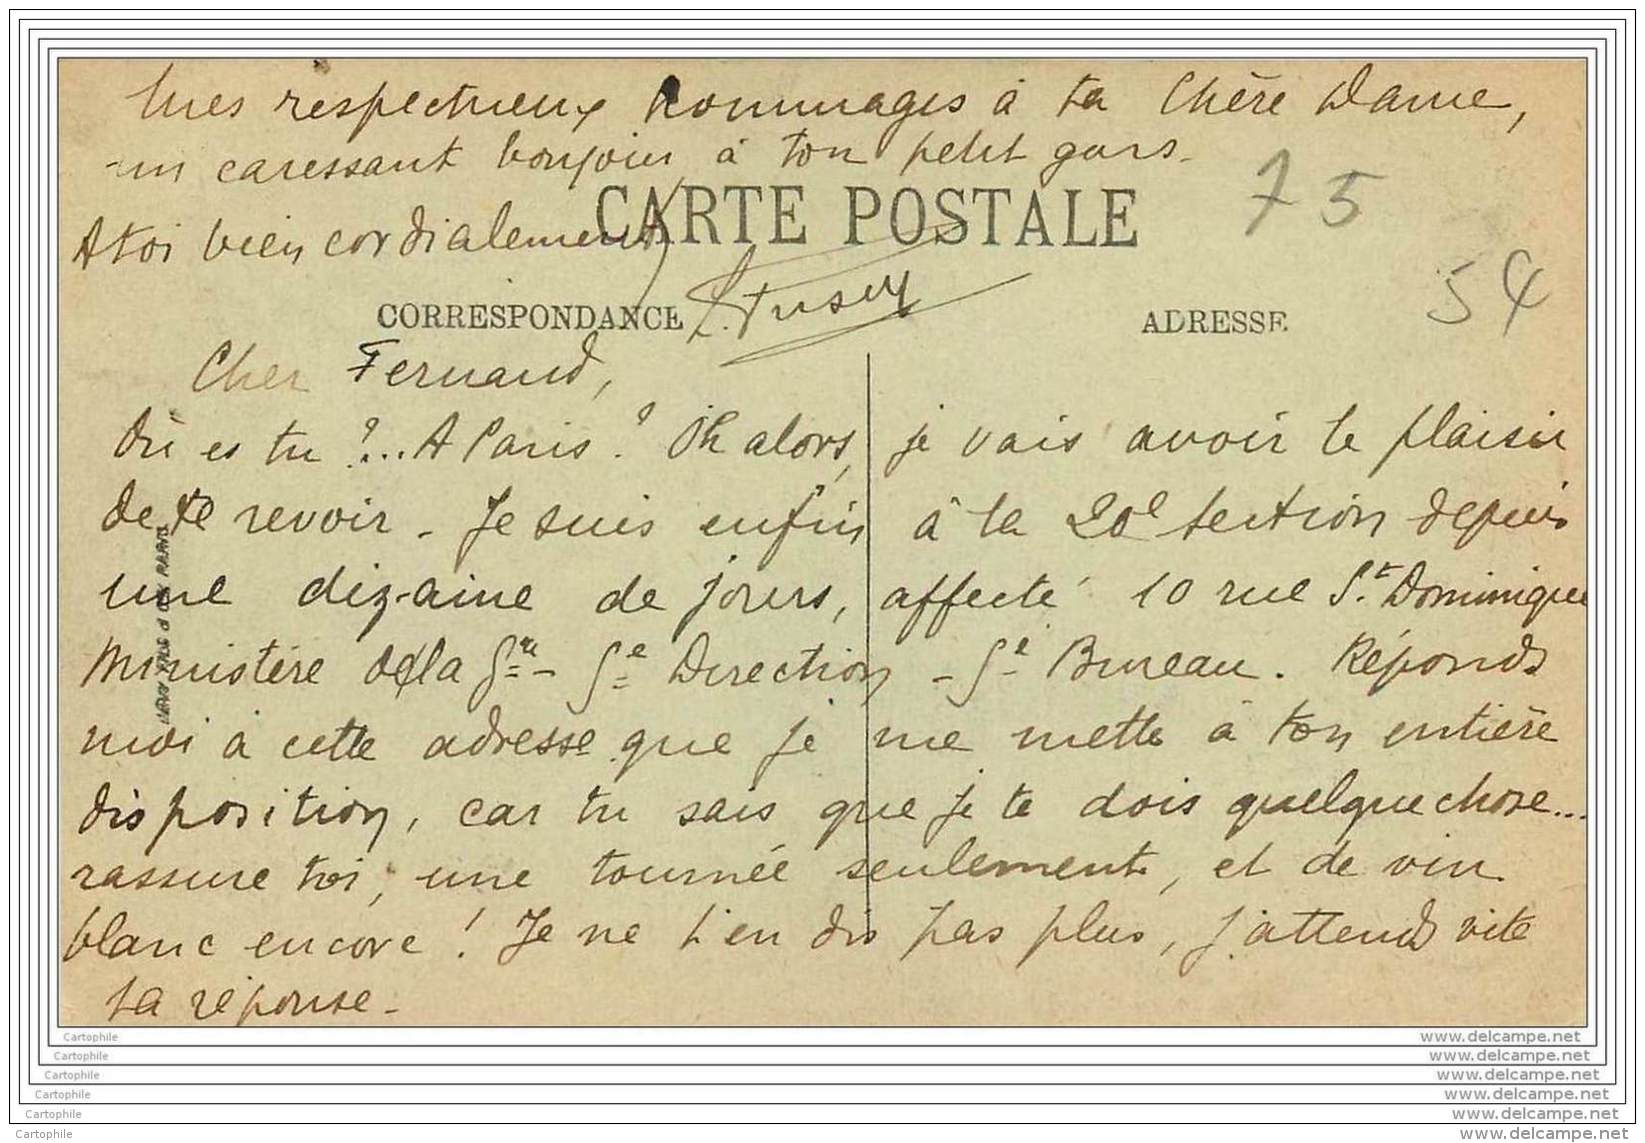 Mes respectueux hommages à ta Chère Dame,
un caressant bonjour à ton petit gars.
A toi bien cordialement
CARTE POSTALE
75
54
CORRESPONDANCE
ADRESSE
Cher Fernand,
Où es tu ?... A Paris ? Oh alors, je vais avoir le plaisir
de te revoir. Je suis enfin à la 20e section depuis
une dizaine de jours, affecté 10 rue St. Dominique
Ministère de la Direction Bureau. Réponds
moi à cette adresse que je me mette à ton entière
disposition, car tu sais que je te dois quelque chose...
rassure toi, une tournée seulement, et de vin
blanc encore ! Je ne t'en dis pas plus, j'attends vite
ta réponse.
Cartophile www.delcampe.net
Cartophile www.delcampe.net
Cartophile www.delcampe.net
Cartophile www.delcampe.net
Cartophile www.delcampe.net
Cartophile www.delcampe.net